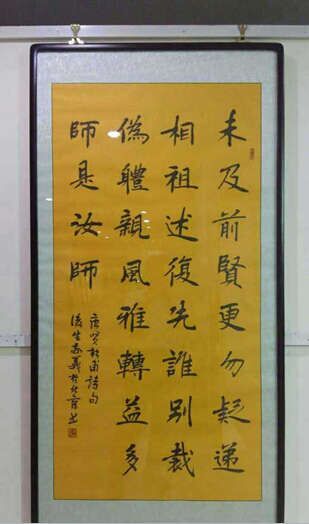 未及前賢更勿疑遞
相祖述復先誰別裁
偽體親風雅轉益多
師是汝師
唐賢杜甫詩句
後生義於北京書